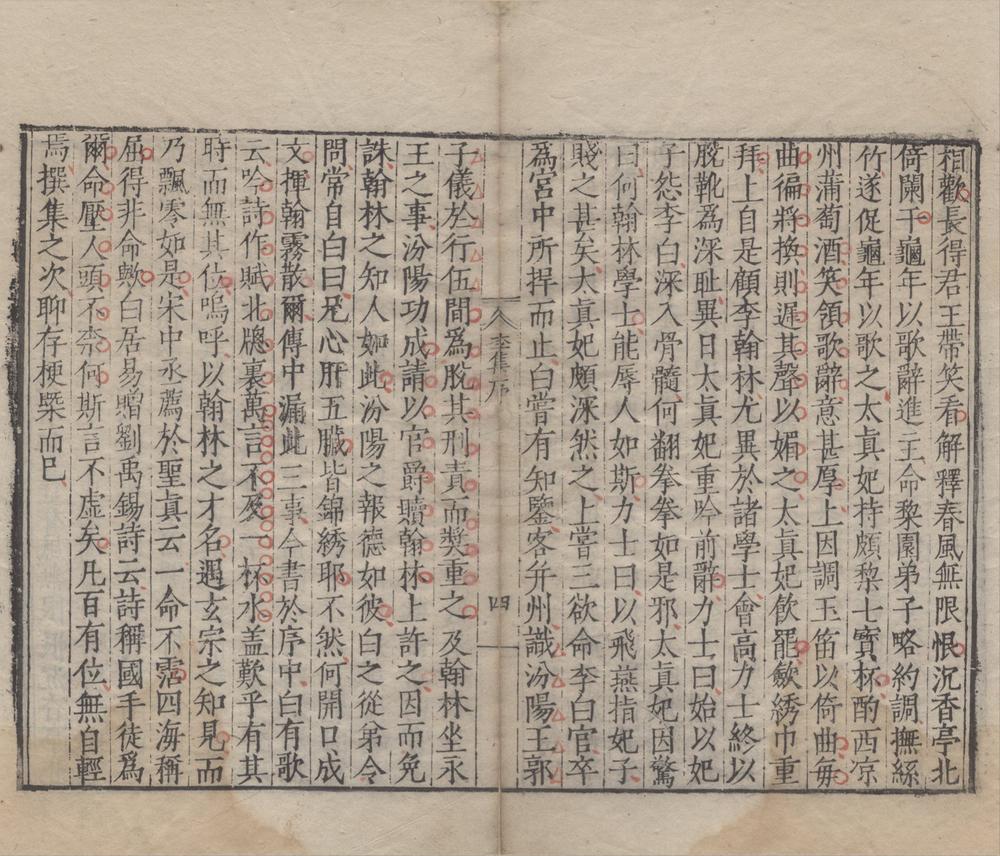 相歡長得君王帶笑看解釋春風無限恨沉香亭北
倚闌干龜年以歌辭進上命黎園弟子略約調撫絲
竹遂促龜年以歌之太真妃持頗黎七寶杯酌西凉
州蒲萄酒笑領歌辭意甚厚上因調玉笛以倚曲每
曲徧將換則遲其聲以媚之太真妃飲罷歛綉巾重
拜上自是顧李翰林尤異於諸學士會高力士終以
脫靴為深耻異日太真妃重吟前辭力士曰始以妃
子怨李白深入骨髓何翻拳拳如是邪太真妃因驚
曰何翰林學士能辱人如斯力士曰以飛燕指妃子
賤之甚矣太真妃頗深然之上嘗三欲命李白官卒
為宮中所捍而止白嘗有知鑒客并州識汾陽王郭
李集序
四
子儀於行伍間為脫其刑責而奬重之及翰林坐永
王之事汾陽功成請以官爵贖翰林上許之因而免
誅翰林之知人如此汾陽之報德如彼白之從弟令
問常自白曰兄心肝五臟皆錦綉耶不然何開口成
文揮翰霧散爾傳中漏此三事今書於序中白有歌
云吟詩作賦北牕裏萬言不及一杯水盖歎乎有其
時而無其位嗚呼以翰林之才名遇玄宗之知見而
乃飄零如是宋中丞薦於聖真云一命不霑四海稱
屈得非命歟白居易贈劉禹錫詩云詩稱國手徒為
爾命壓人頭不柰何斯言不虛矣凡百有位無自輕
焉撰集之次聊存梗槩而已